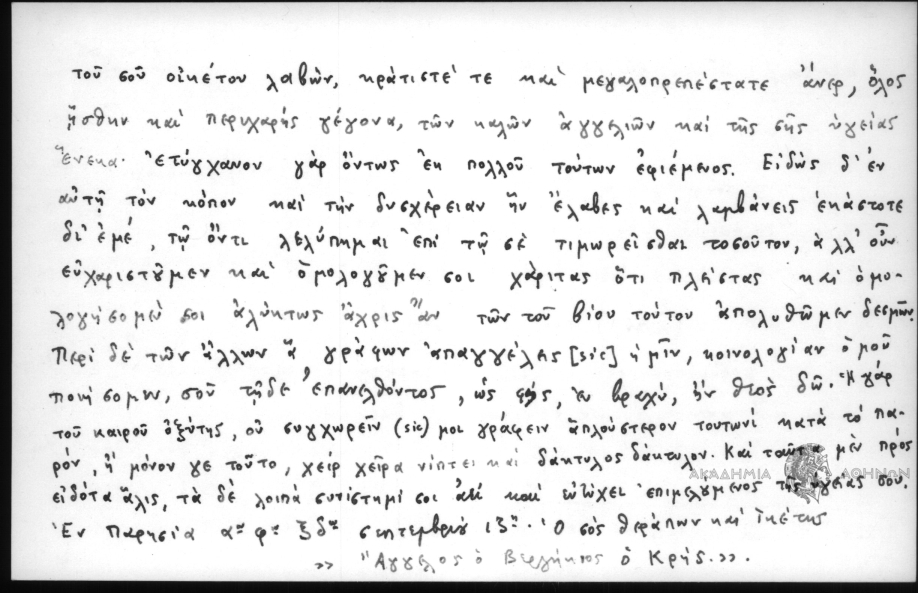 τοῦ σοῦ οἰκέτου λαβὼν, κράτιστέ τε καὶ μεγαλοπρεπέστατε ἄνερ, ὅλος
ἥσθην καὶ περιχαρὴς γέγονα, τῶν καλῶν ἀγγελιῶν καὶ τῆς σῆς ὑγείας
ἕνεκα· ἐτύγχανον γὰρ ὄντως ἐκ πολλοῦ τούτων ἐφιέμενος. Εἰδὼς δ' ἐν
αὐτῇ τὸν κόπον καὶ τὴν δυσχέρειαν ἣν ἔλαβες καὶ λαμβάνεις ἑκάστοτε
δι' ἐμέ, τῷ ὄντι λελύπημαι ἐπὶ τῷ σὲ τιμωρεῖσθαι τοσοῦτον, ἀλλ' οὖν
εὐχαριστοῦμεν καὶ ὁμολογοῦμεν σοι χάριτας ὅτι πλείστας καὶ ὁμο-
λογήσομέν σοι ἀλύκτως ἄχρις ἂν τῶν τοῦ βίου τούτου ἀπολυθῶμεν δεσμῶν.
Περὶ δὲ τῶν ἄλλων ἃ γράφων ἀπαγγέλεις [sic] ἡμῖν, κοινολογίαν ὁμοῦ
ποιήσομεν, σοῦ τῇδε ἐπανελθόντος, ὡς φῄς, ἐν βραχύ, ἢν θεὸς δῷ. Ἡ γὰρ
τοῦ καιροῦ ὀξύτης, οὐ συγχωρεῖν (sic) μοι γράφειν ἁπλούστερον τουτωνὶ κατὰ τὸ πα-
ρόν, ἢ μόνον γε τοῦτο, χεὶρ χεῖρα νίπτει καὶ δάκτυλος δάκτυλον. Καὶ ταῦτα μὲν πρὸς
εἰδότα ἅλις, τὰ δὲ λοιπὰ συνίστημί σοι ἀεὶ καὶ εὐτύχει ἐπιμελούμενος τῆς ὑγείας σου.
Ἐν Παρησίᾳ αῳ φῳ ξδῳ σεπτεμβρίου ιξῃ. Ὁ σὸς θεράπων καὶ ἱκέτης
»» Ἄγγελος ὁ Βεργήκιος ὁ Κρής. »».
ΑΚΑΔΗΜΙΑ ΑΘΗΝΩΝ